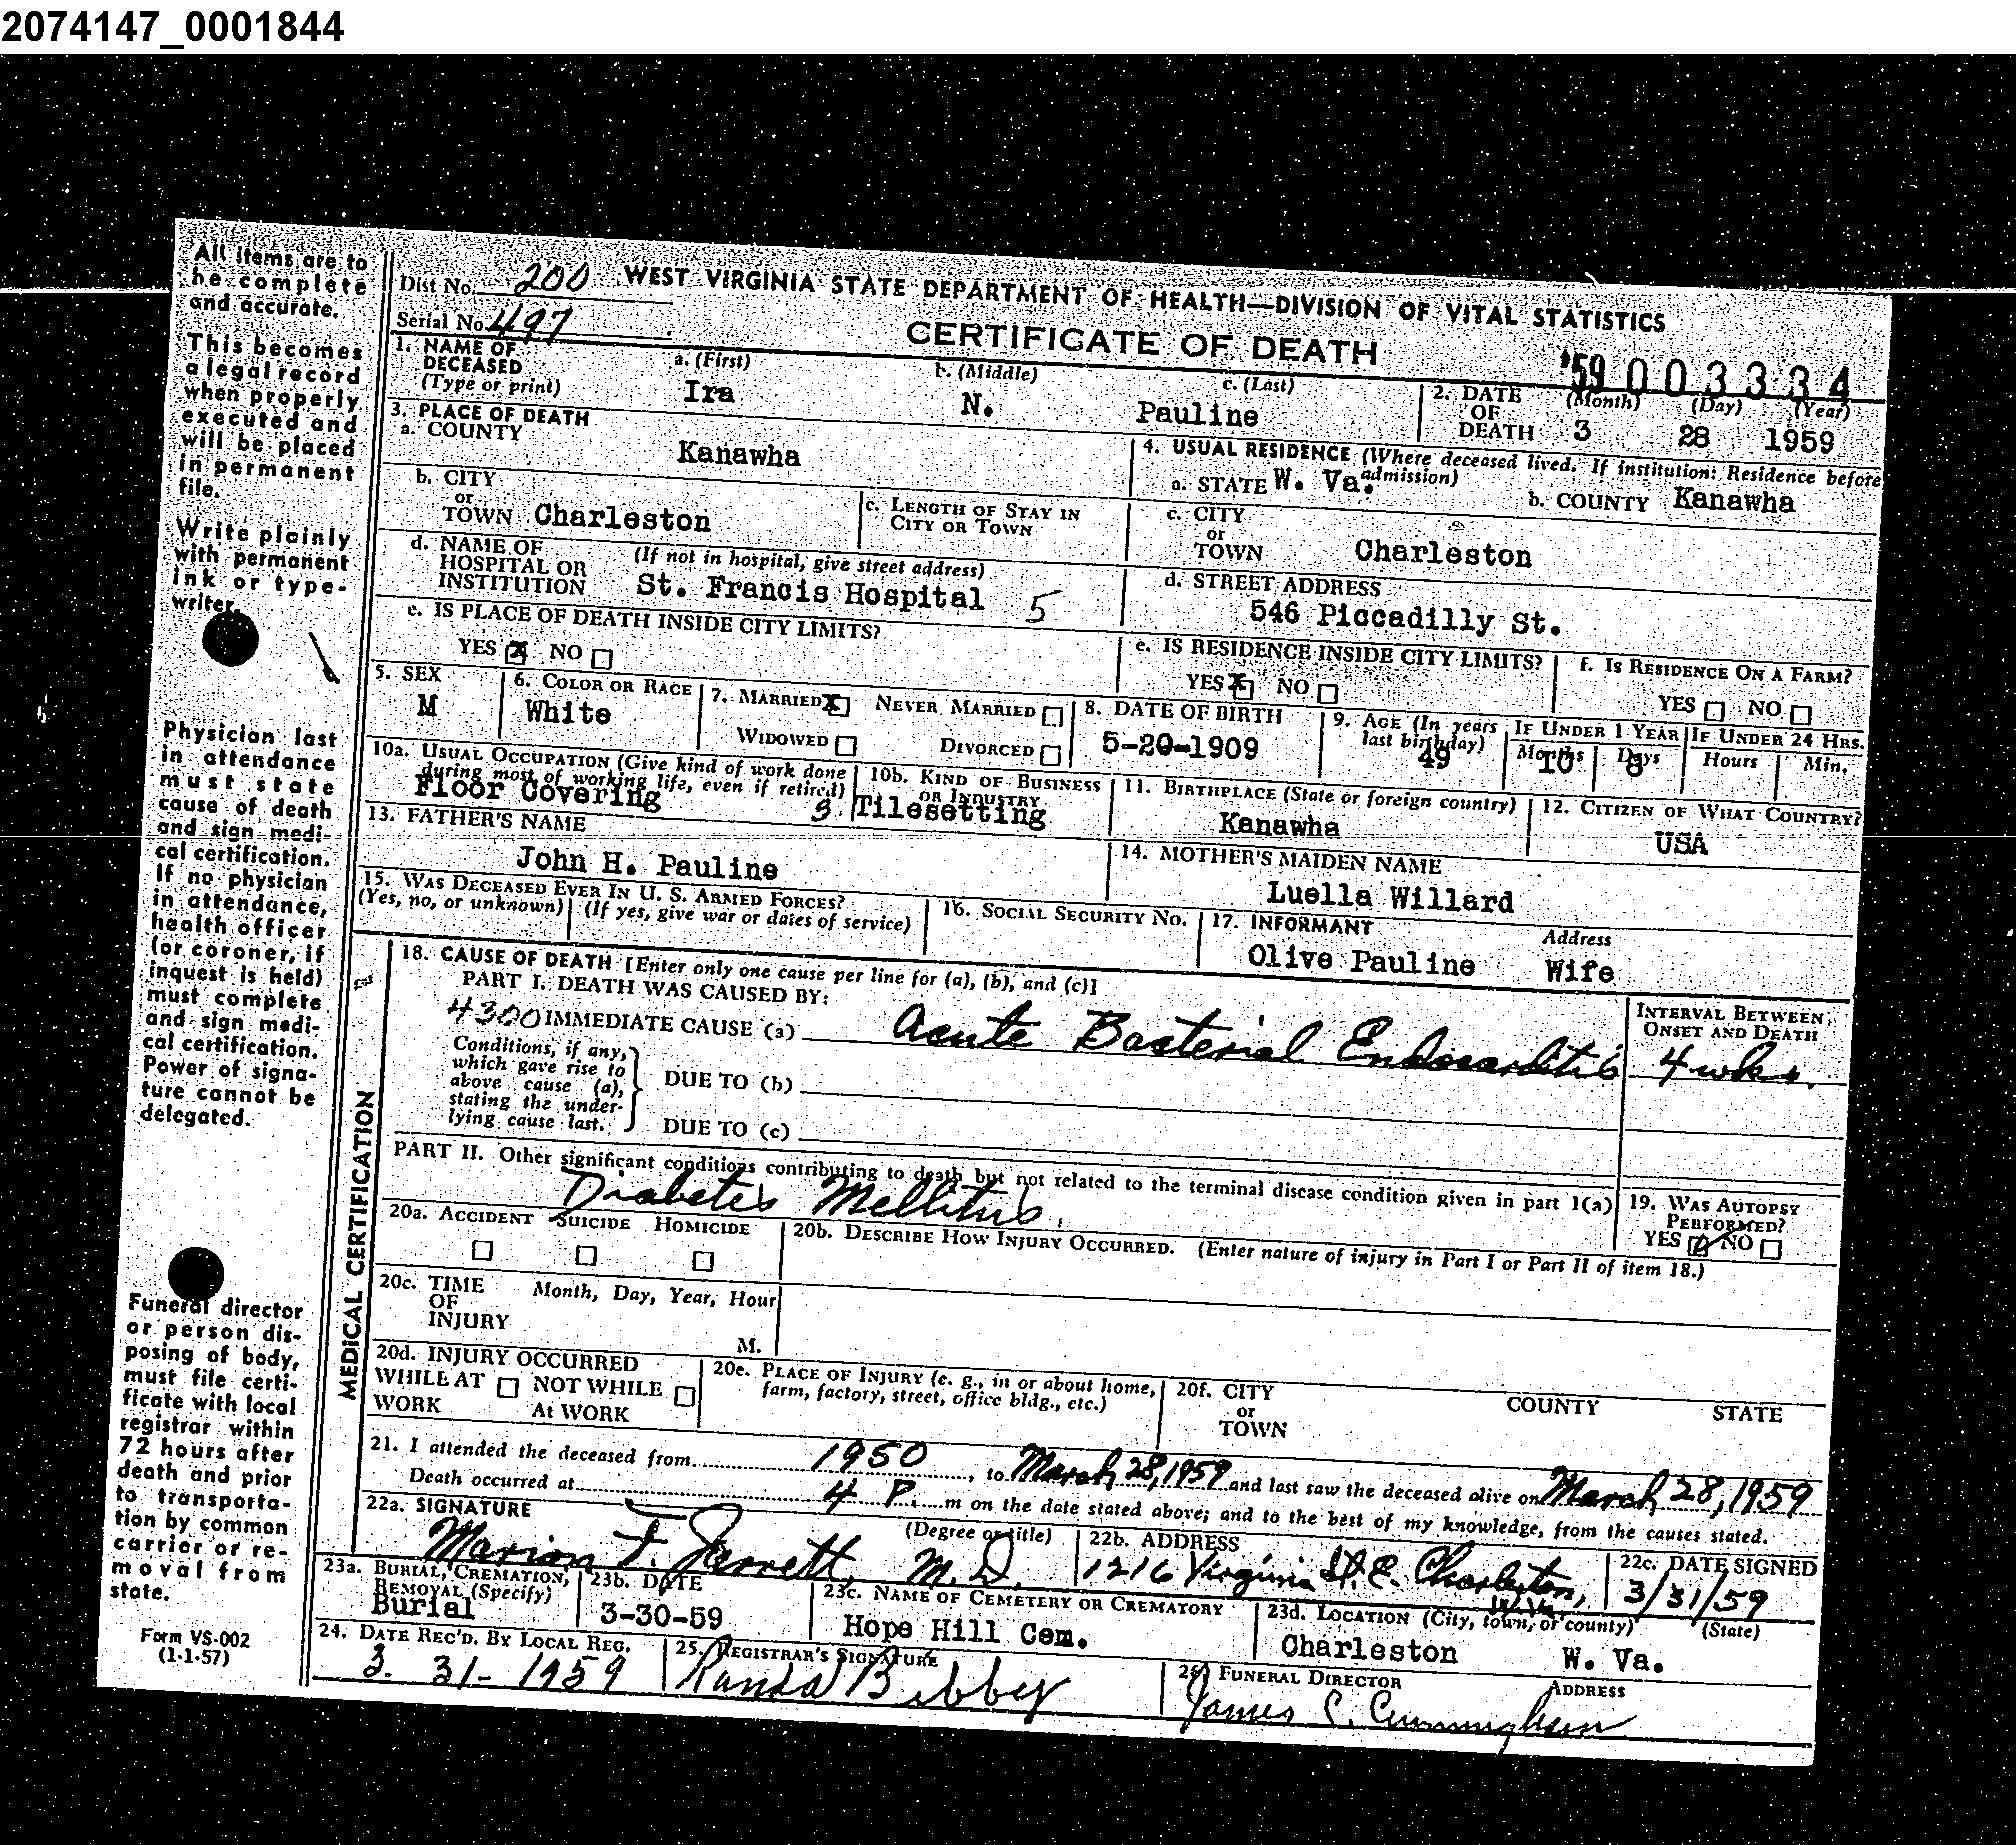 2074147_0001844
All items are to
be complete
and accurate.
This becomes
a legal record
when properly
executed and
will be placed
in permanent
file.
Write plainly
with permanent
ink or type-
writer.
Physician last
in attendance
must state
cause of death
and sign medi-
cal certification.
If no physician
in attendance,
health officer
(or coroner, if
inquest is held)
must complete
and sign medi-
cal certification.
Power of signa-
ture cannot be
delegated.
Funeral director
or person dis-
posing of body,
must file certi-
ficate with local
registrar within
72 hours after
death and prior
to transporta-
tion by common
carrier or re-
moval from
state.
Form VS-002
(1-1-57)
Dist No. 200 WEST VIRGINIA STATE DEPARTMENT OF HEALTH—DIVISION OF VITAL STATISTICS
Serial No. 497
CERTIFICATE OF DEATH
'59 003334
1. NAME OF DECEASED (Type or print) a. (First) b. (Middle) c. (Last)
Ira N. Pauline
2. DATE OF DEATH (Month) (Day) (Year)
3 28 1959
3. PLACE OF DEATH
a. COUNTY Kanawha
4. USUAL RESIDENCE (Where deceased lived. If institution: Residence before admission)
a. STATE W. Va. b. COUNTY Kanawha
b. CITY or TOWN Charleston
c. LENGTH OF STAY IN CITY OR TOWN
c. CITY or TOWN Charleston
d. NAME OF HOSPITAL OR INSTITUTION (If not in hospital, give street address)
St. Francis Hospital 5
d. STREET ADDRESS
546 Piccadilly St.
e. IS PLACE OF DEATH INSIDE CITY LIMITS?
YES X NO
e. IS RESIDENCE INSIDE CITY LIMITS?
YES X NO
f. IS RESIDENCE ON A FARM?
YES NO
5. SEX
M
6. COLOR OR RACE
White
7. MARRIED X NEVER MARRIED
WIDOWED DIVORCED
8. DATE OF BIRTH
5-20-1909
9. AGE (In years last birthday)
49
IF UNDER 1 YEAR
Months Days
10 8
IF UNDER 24 HRS.
Hours Min.
10a. USUAL OCCUPATION (Give kind of work done during most of working life, even if retired)
Floor Covering 3
10b. KIND OF BUSINESS OR INDUSTRY
Tilesetting
11. BIRTHPLACE (State or foreign country)
Kanawha
12. CITIZEN OF WHAT COUNTRY?
USA
13. FATHER'S NAME
John H. Pauline
14. MOTHER'S MAIDEN NAME
Luella Willard
15. WAS DECEASED EVER IN U. S. ARMED FORCES?
(Yes, no, or unknown) (If yes, give war or dates of service)
16. SOCIAL SECURITY NO.
17. INFORMANT Address
Olive Pauline Wife
MEDICAL CERTIFICATION
18. CAUSE OF DEATH [Enter only one cause per line for (a), (b), and (c)]
PART I. DEATH WAS CAUSED BY:
4300 IMMEDIATE CAUSE (a) Acute Bacterial Endocarditis
INTERVAL BETWEEN ONSET AND DEATH
4 wks.
Conditions, if any, which gave rise to above cause (a), stating the under-lying cause last.
DUE TO (b)
DUE TO (c)
PART II. Other significant conditions contributing to death but not related to the terminal disease condition given in part 1(a)
Diabetes Mellitus
19. WAS AUTOPSY PERFORMED?
YES NO
20a. ACCIDENT SUICIDE HOMICIDE
20b. DESCRIBE HOW INJURY OCCURRED. (Enter nature of injury in Part I or Part II of item 18.)
20c. TIME OF INJURY Month, Day, Year, Hour
M.
20d. INJURY OCCURRED
WHILE AT WORK NOT WHILE At WORK
20e. PLACE OF INJURY (e. g., in or about home, farm, factory, street, office bldg., etc.)
20f. CITY or TOWN COUNTY STATE
21. I attended the deceased from 1950, to March 28, 1959 and last saw the deceased alive on March 28, 1959
Death occurred at 4 P. m on the date stated above; and to the best of my knowledge, from the causes stated.
22a. SIGNATURE (Degree or title)
Marion F. Jarrett, M.D.
22b. ADDRESS
1216 Virginia St. E. Charleston, W.Va.
22c. DATE SIGNED
3/31/59
23a. BURIAL, CREMATION, REMOVAL (Specify)
Burial
23b. DATE
3-30-59
23c. NAME OF CEMETERY OR CREMATORY
Hope Hill Cem.
23d. LOCATION (City, town, or county) (State)
Charleston W. Va.
24. DATE REC'D. BY LOCAL REG.
3. 31-1959
25. REGISTRAR'S SIGNATURE
Bibbey
26. FUNERAL DIRECTOR ADDRESS
James C. Cunningham